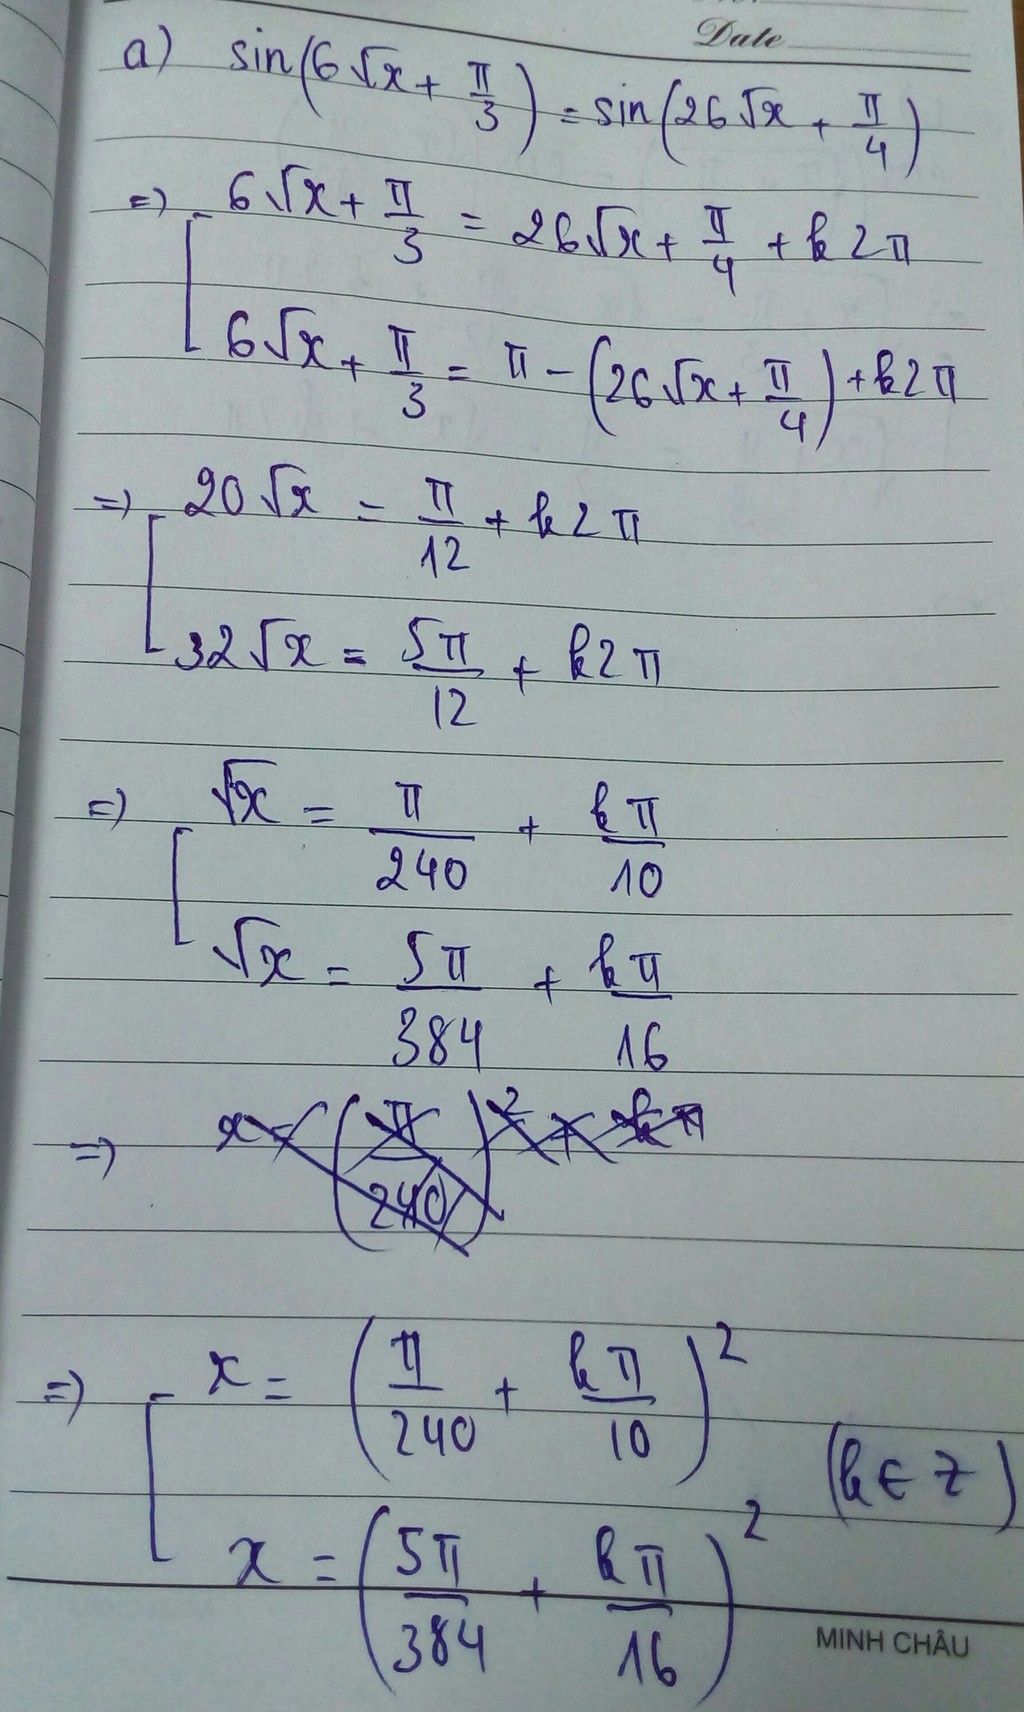 Date
a) sin(6√x + π/3) = sin(26√x + π/4)
=> [ 6√x + π/3 = 26√x + π/4 + k2π
6√x + π/3 = π - (26√x + π/4) + k2π
=> [ 20√x = π/12 + k2π
32√x = 5π/12 + k2π
=> [ √x = π/240 + kπ/10
√x = 5π/384 + kπ/16
=> x = (π/240)² + kπ
=> [ x = (π/240 + kπ/10)²
(k ∈ Z)
x = (5π/384 + kπ/16)²
MINH CHÂU